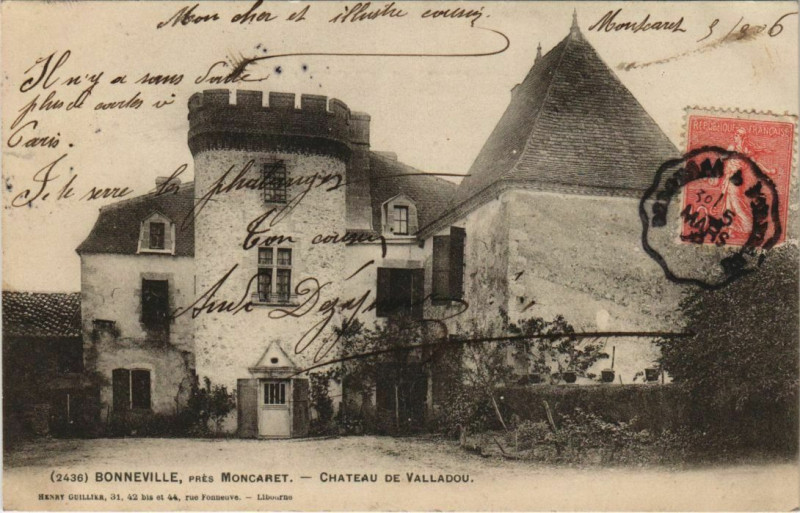 Mon cher et illustre cousin,
Montcaret 5/1906
Il n'y a sans doute
plus de cartes à
Paris.
Je te serre les phalanges
Ton cousin
REPUBLIQUE FRANÇAISE
30
MARS
(2436) BONNEVILLE, PRÈS MONCARET. — CHATEAU DE VALLADOU.
HENRY GUILLIER, 31, 42 bis et 44, rue Fonneuve. — Libourne